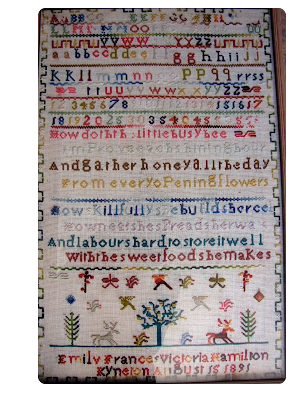 aabbccddee gghhiijj
KKllmmnn PPqqrrss
ttuuvvwwxxyyzz
345678 151617
18192025 30354045
Howdoththelittlebusybee
Andgatherhoneyalltheday
Fromeveryopeningflowers
Howskilfullyshebuildshercel
Howneatshespreadsherwax
Andlabourshardtostoreitwell
Withthesweetfoodshemakes
Emily Frances Victoria Hamilton
Kyneton August 15 1891